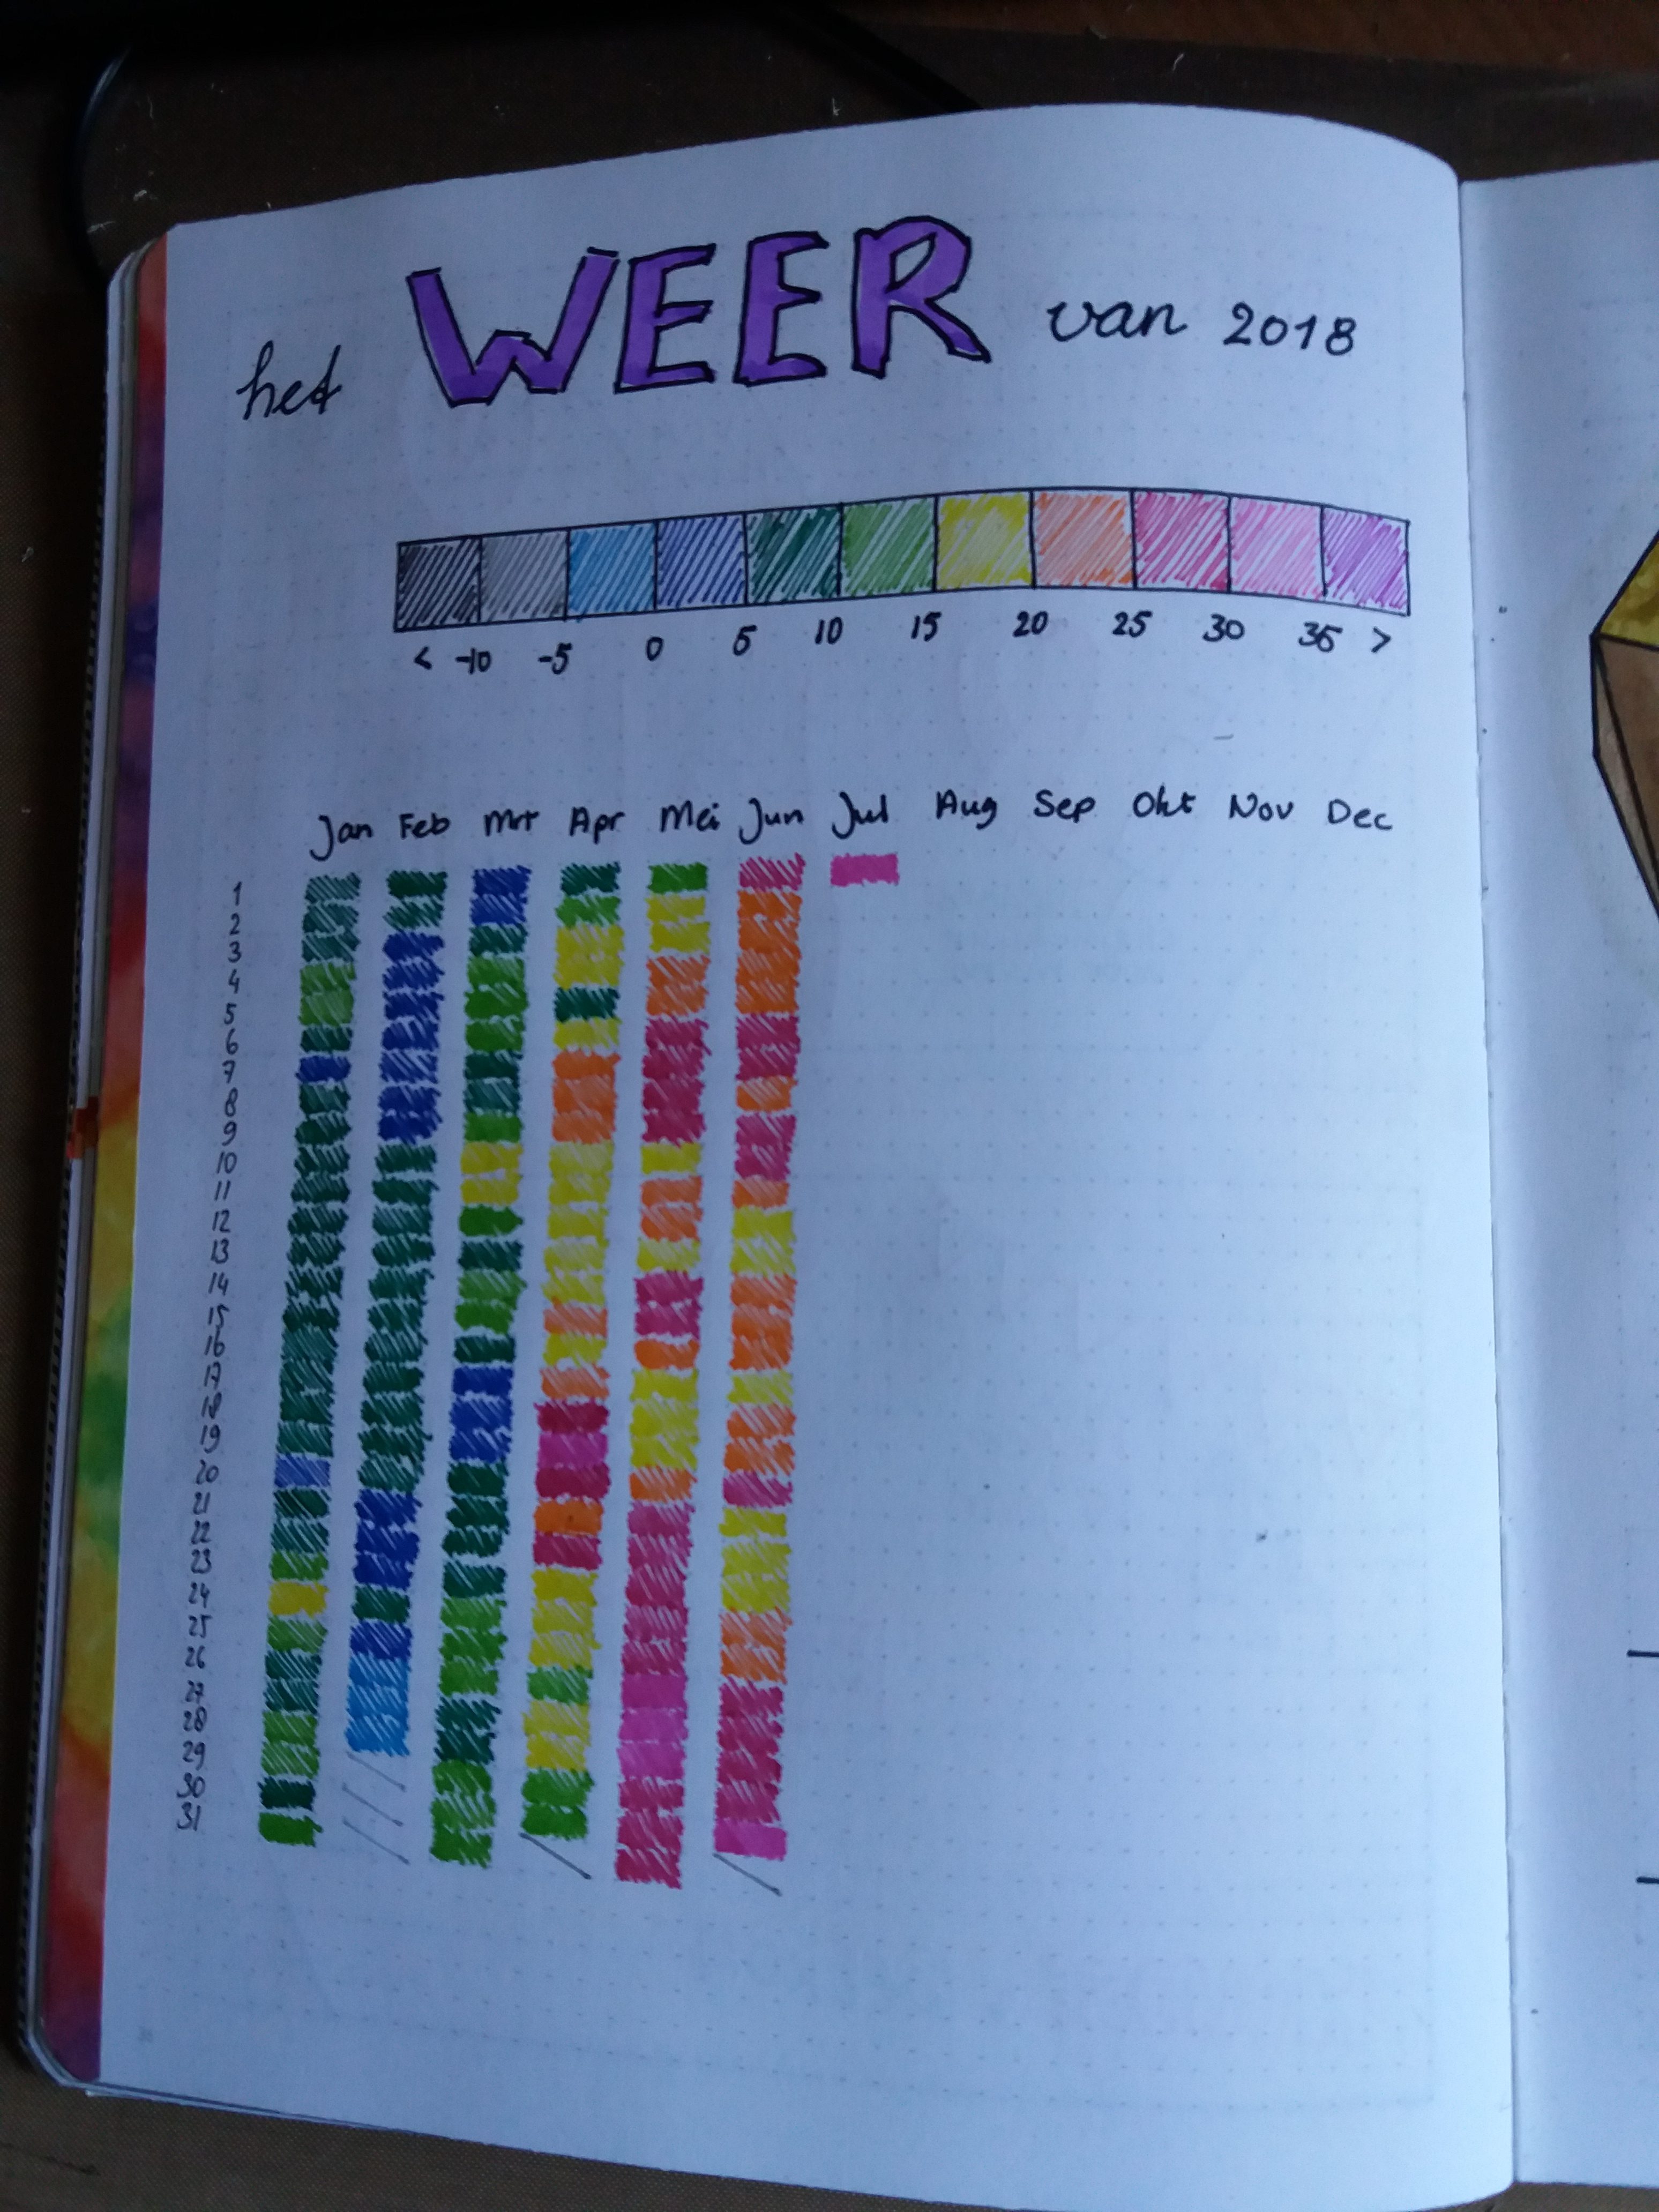 het WEER van 2018
< -10 -5 0 5 10 15 20 25 30 35 >
Jan Feb Mrt Apr Mei Jun Jul Aug Sep Okt Nov Dec
1
2
3
4
5
6
7
8
9
10
11
12
13
14
15
16
17
18
19
20
21
22
23
24
25
26
27
28
29
30
31